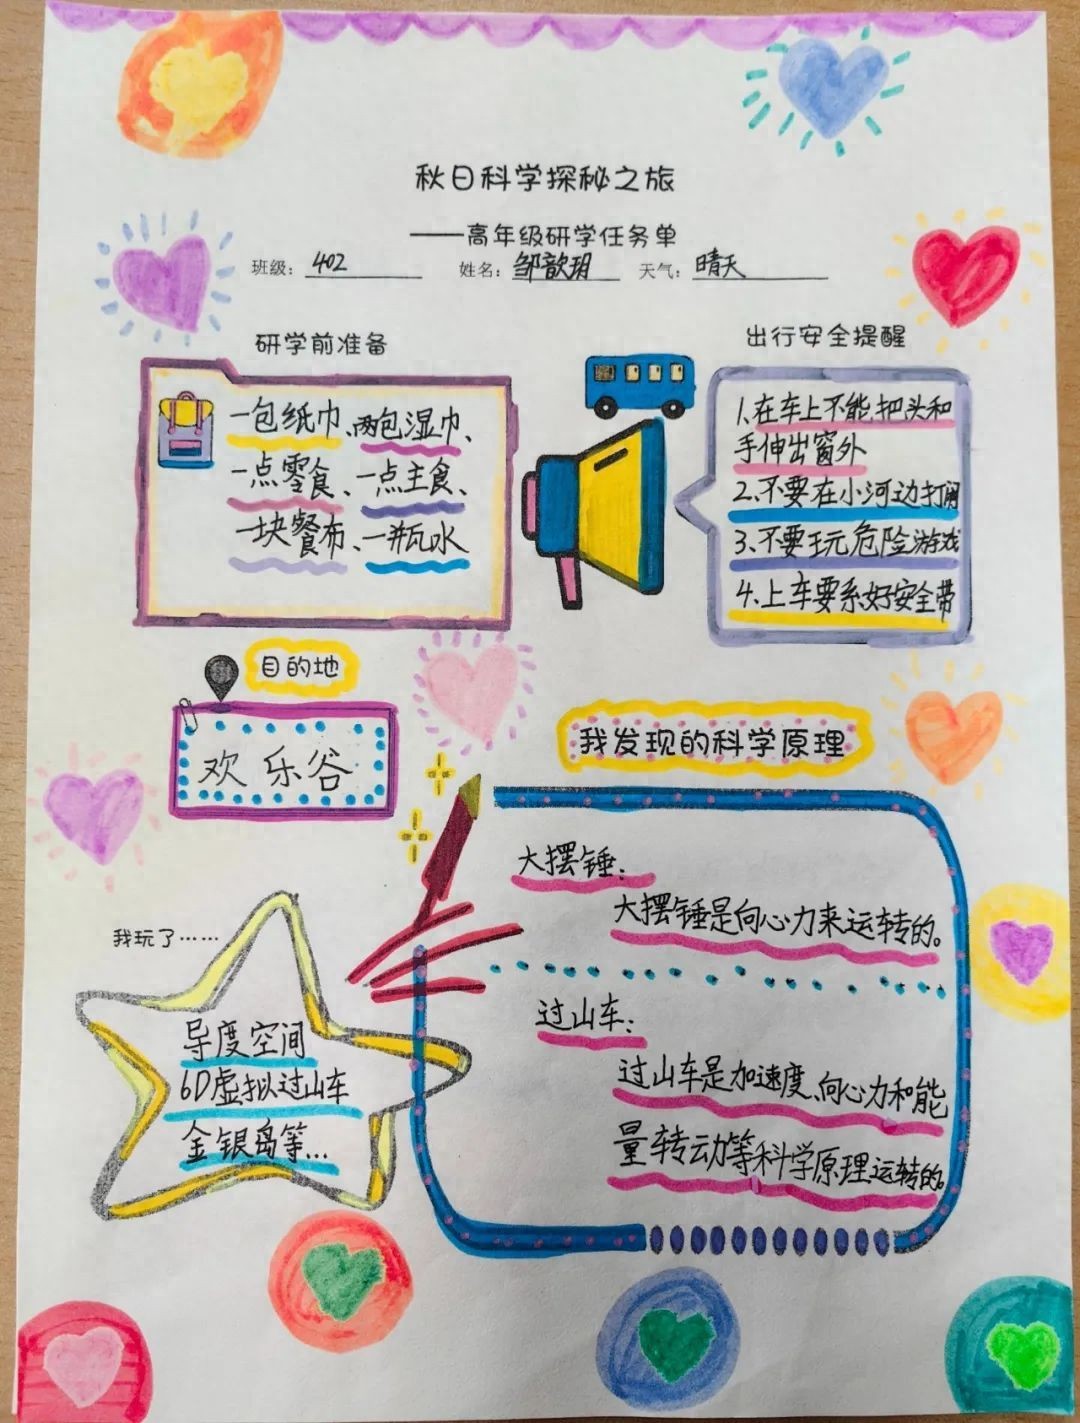 秋日科学探秘之旅
——高年级研学任务单
班级：402 姓名：邹歆玥 天气：晴天
研学前准备
一包纸巾、两包湿巾、
一点零食、一点主食、
一块餐布、一瓶水
出行安全提醒
1.在车上不能把头和
手伸出窗外
2.不要在小河边打闹
3.不要玩危险游戏
4.上车要系好安全带
目的地
欢乐谷
我发现的科学原理
大摆锤：
大摆锤是向心力来运转的。
过山车：
过山车是加速度、向心力和能
量转动等科学原理运转的。
我玩了……
导度空间
6D虚拟过山车
金银岛等…